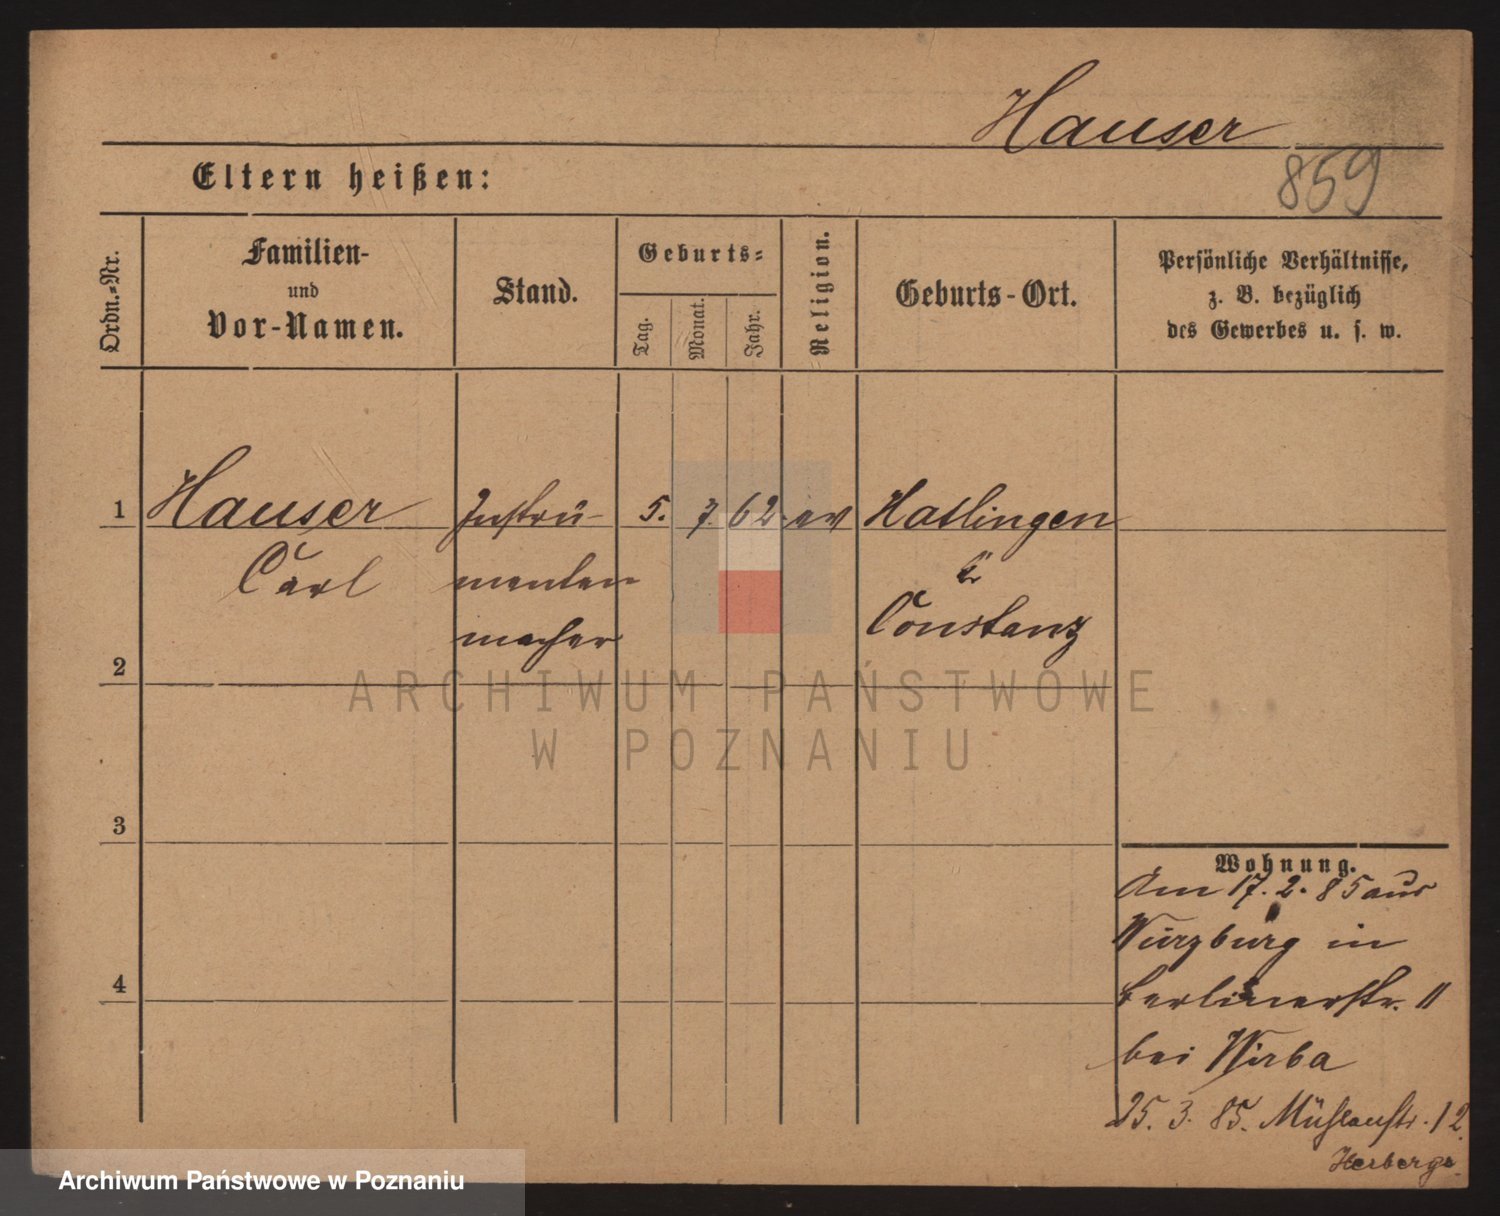 Hauser
859
Eltern heißen:
Ordn.-Nr.
Familien-
und
Vor-Namen.
Stand.
Geburts-
Tag.
Monat.
Jahr.
Religion.
Geburts-Ort.
Persönliche Verhältnisse,
z. B. bezüglich
des Gewerbes u. s. w.
1 Hauser Instru- 5. 7. 62. ev Hatlingen
Carl menten
macher Constanz
2
3
4
Wohnung.
Am 17. 2. 85 aus
Würzburg in
Berlinerstr. 11
bei Wirba
25. 3. 85. Mühlenstr. 12.
Herberge
ARCHIWUM PAŃSTWOWE
W POZNANIU
Archiwum Państwowe w Poznaniu